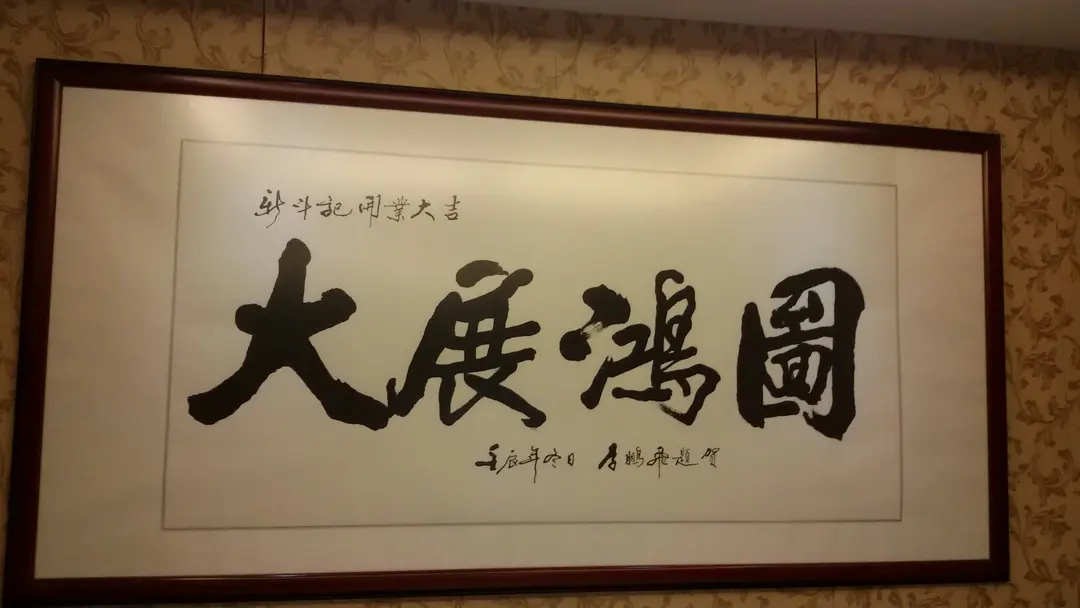 新斗記開業大吉
大展鴻圖
壬辰年冬日 李鵬飛題賀